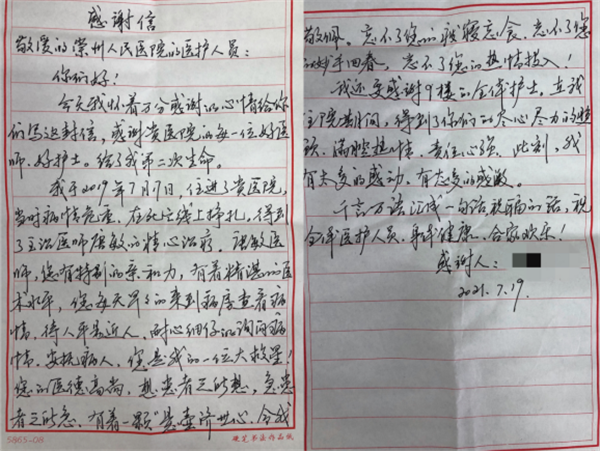 感谢信
敬爱的崇州人民医院的医护人员：
你们好！
今天我怀着万分感谢的心情给你
们写这封信，感谢贵医院的每一位好医
师、好护士。给了我第二次生命。
我于2019年7月17日，住进了贵医院，
当时病情危重、在死亡线上挣扎，得到
了主治医师唐敏的精心治疗。唐敏医
师，您有特别的亲和力，有着精湛的医
术水平，您每天早早的来到病房查看病
情、待人平易近人、耐心细仔的询问病
情、安抚病人，您是我的一位大救星！
您的医德高尚，想患者之所想，急患
者之所急、有着一颗“悬壶济世心、令我
5865-08
硬笔书法作品纸
敬佩、忘不了您的废寝忘食、忘不了您
的妙手回春、忘不了您的热情投入！
我还要感谢9楼的全体护士，在我
住院期间，得到了你们的尽心尽力的照
顾、满腔热情、责任心强。此刻，我
有太多的感动、有太多的感激。
千言万语汇成一句话祝福的话，祝
全体医护人员、身体健康、合家欢乐！
感谢人：
2021.7.19.